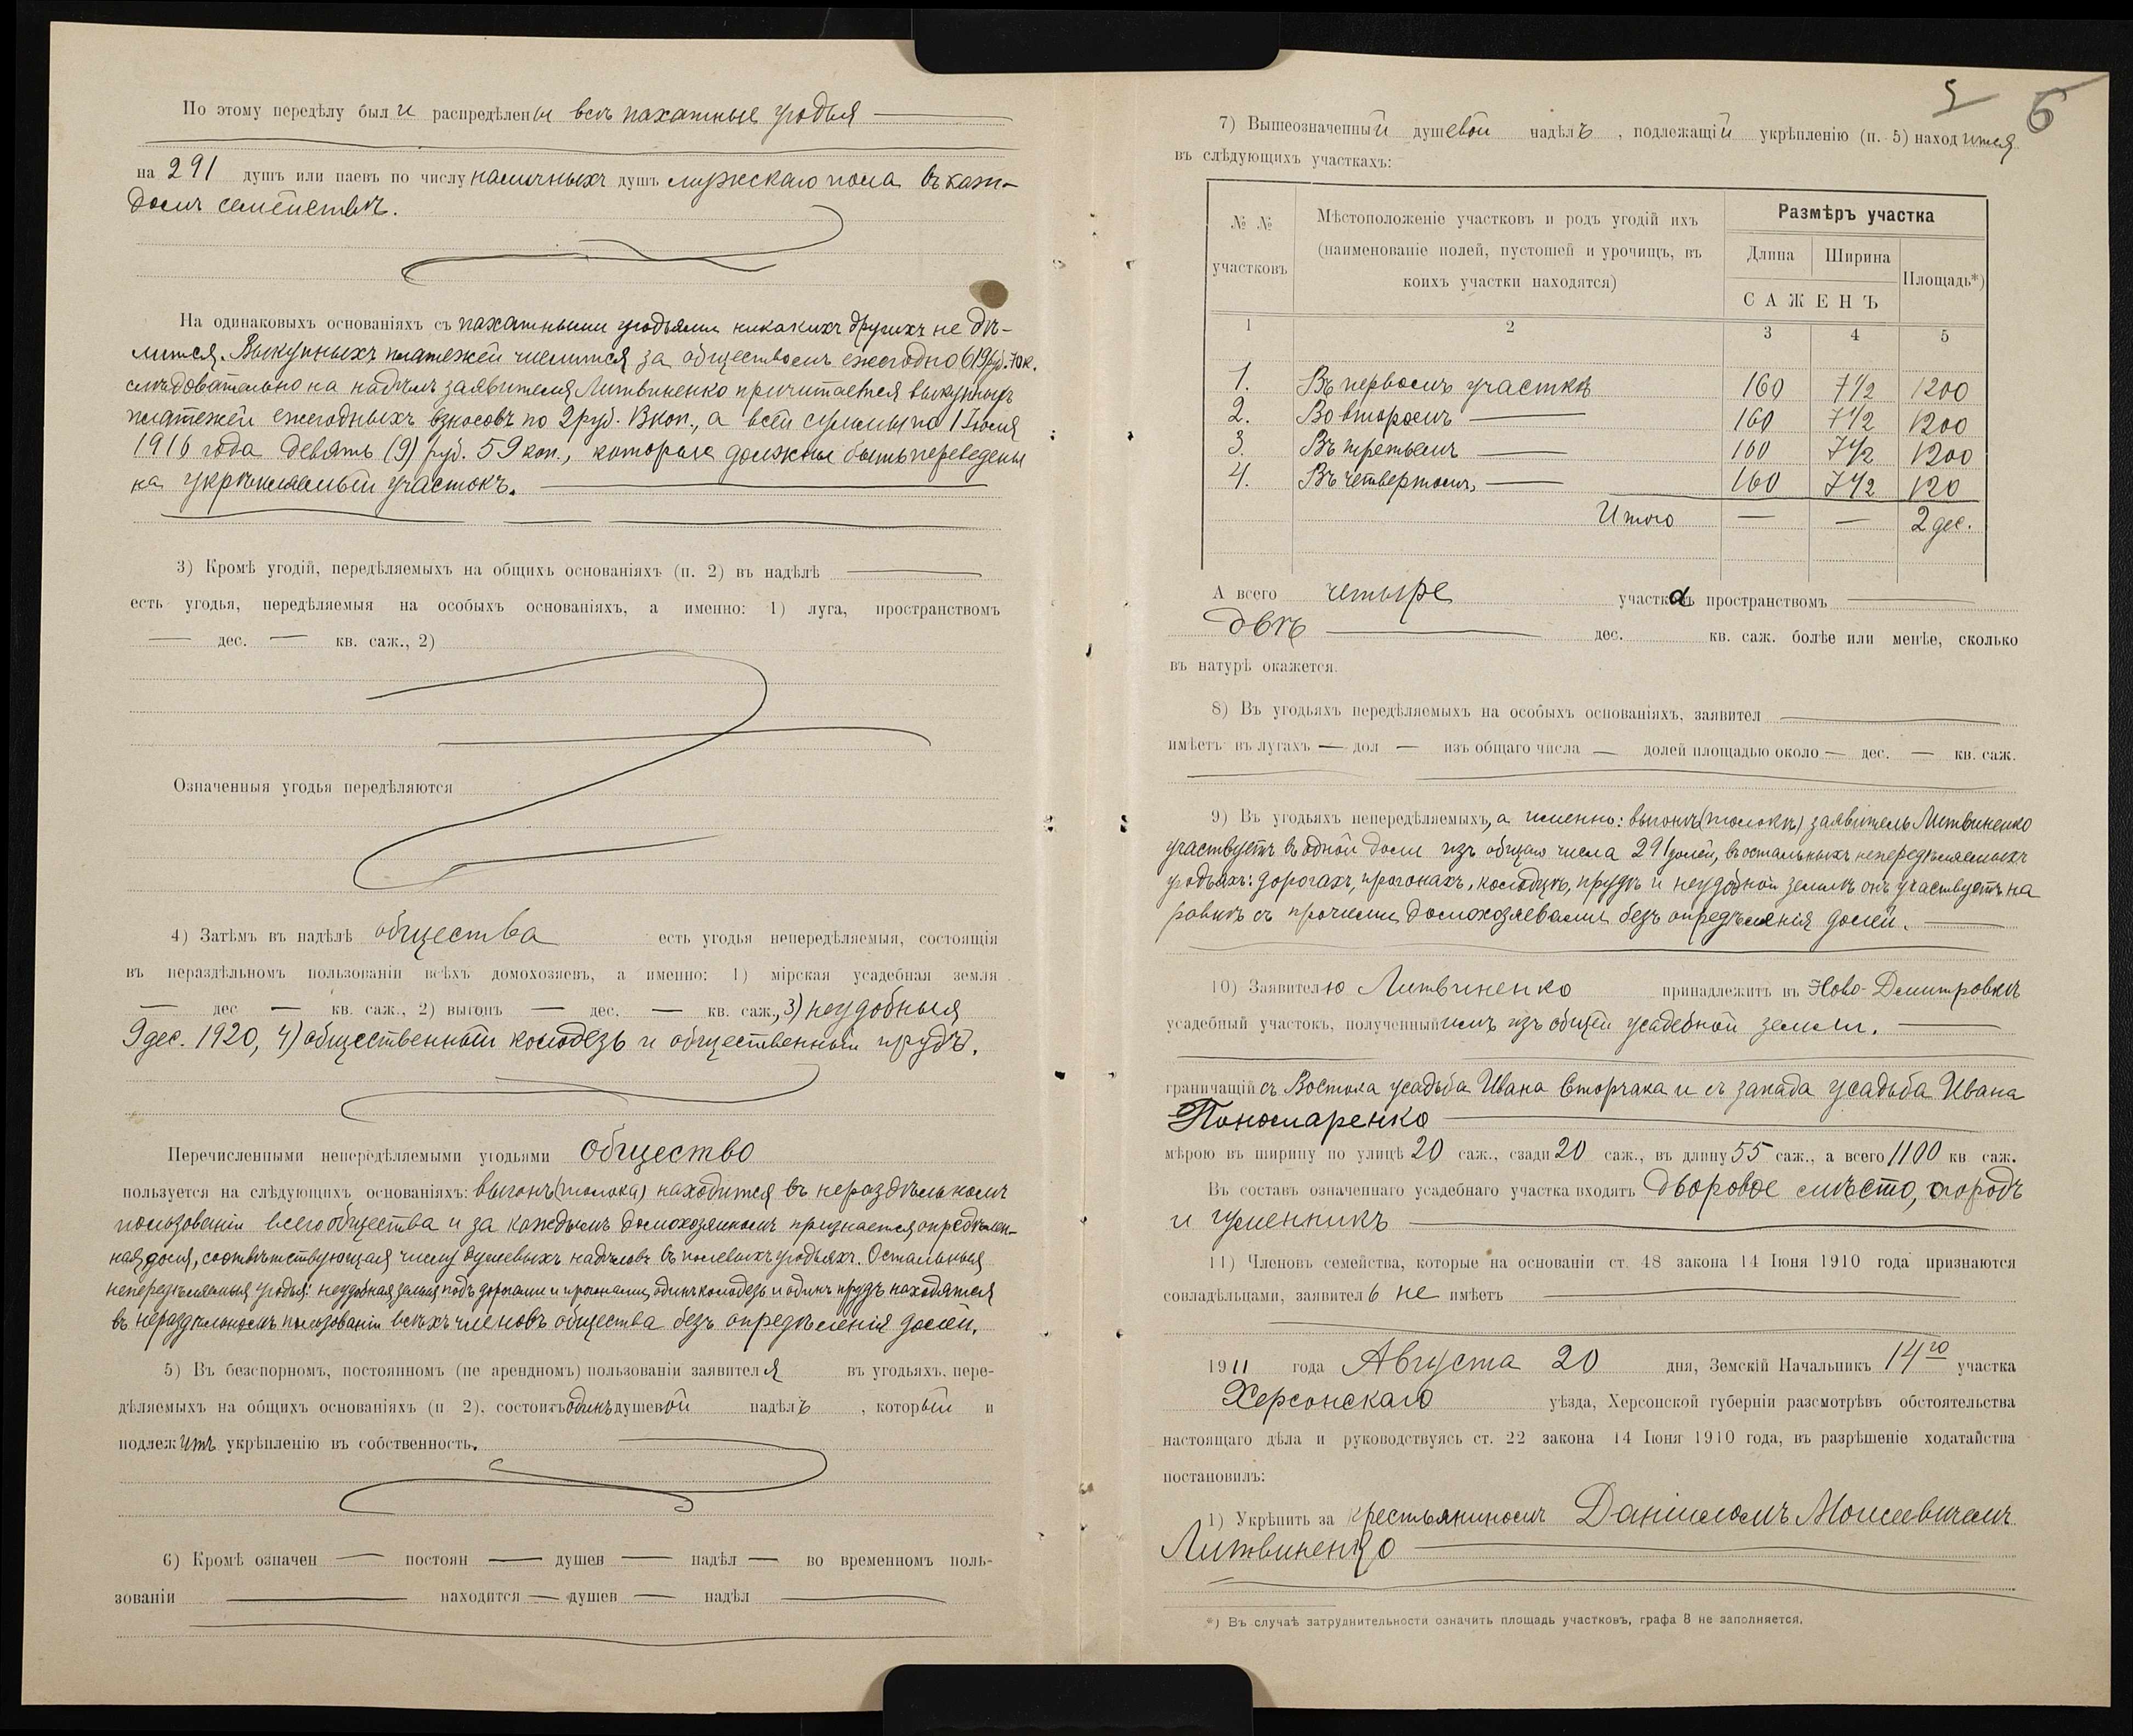 По этому передѣлу были распредѣлены всѣ пахатныя угодья
на 291 душъ или паевъ по числу наличныхъ душъ мужскаго пола въ каж-
домъ семействѣ.
На одинаковыхъ основаніяхъ съ пахатными угодьями никакихъ другихъ не дѣ-
лится. Выкупныхъ платежей числится за обществомъ ежегодно 619 руб. 70 к.
слѣдовательно на надѣлъ заявителя Литвиненко причитается выкупныхъ
платежей ежегодныхъ взносовъ по 2 руб. 13 коп., а всей суммы по 1 Іюля
1916 года девять (9) руб. 59 коп., которые должны быть переведены
на укрѣпляемый участокъ.
3) Кромѣ угодій, передѣляемыхъ на общихъ основаніяхъ (п. 2) въ надѣлѣ
есть угодья, передѣляемыя на особыхъ основаніяхъ, а именно: 1) луга, пространствомъ
— дес. — кв. саж., 2)
Означенныя угодья передѣляются
4) Затѣмъ въ надѣлѣ общества есть угодья непередѣляемыя, состоящія
въ нераздѣльномъ пользованіи всѣхъ домохозяевъ, а именно: 1) мірская усадебная земля
— дес — кв. саж., 2) выгонъ — дес. — кв. саж., 3) неудобныя
9 дес. 1920, 4) общественный колодезь и общественный прудъ.
Перечисленными непередѣляемыми угодьями общество
пользуется на слѣдующихъ основаніяхъ: выгонъ (толока) находится въ нераздѣльномъ
пользованіи всего общества и за каждымъ домохозяиномъ признается опредѣлен-
ная доля, соотвѣтствующая числу душевыхъ надѣловъ въ полевыхъ угодьяхъ. Остальныя
непередѣляемыя угодья: неудобная земля подъ дорогами и прогонами, одинъ колодезь и одинъ прудъ находятся
въ нераздѣльномъ пользованіи всѣхъ членовъ общества безъ опредѣленія долей.
5) Въ безспорномъ, постоянномъ (не арендномъ) пользованіи заявителя въ угодьяхъ, пере-
дѣляемыхъ на общихъ основаніяхъ (п 2), состоитъ одинъ душевой надѣлъ, который и
подлежитъ укрѣпленію въ собственность.
6) Кромѣ означен — постоян — душев — надѣл — во временномъ поль-
зованіи — находится — душев — надѣл —
5 6
7) Вышеозначенный душевой надѣлъ, подлежащій укрѣпленію (п. 5) находится
въ слѣдующихъ участкахъ:
№ № участковъ
Мѣстоположеніе участковъ и родъ угодій ихъ
(наименованіе полей, пустошей и урочищъ, въ
коихъ участки находятся)
Размѣръ участка
Длина Ширина Площадь*)
САЖЕНЪ
1 2 3 4 5
1. Въ первомъ участкѣ 160 7 1/2 1200
2. Во второмъ — 160 7 1/2 1200
3. Въ третьемъ — 160 7 1/2 1200
4. Въ четвертомъ — 160 7 1/2 120
Итого — — 2 дес.
А всего четыре участка пространствомъ —
двѣ — дес. кв. саж. болѣе или менѣе, сколько
въ натурѣ окажется.
8) Въ угодьяхъ передѣляемыхъ на особыхъ основаніяхъ, заявител —
имѣетъ въ лугахъ — дол — изъ общаго числа — долей площадью около — дес. — кв. саж.
9) Въ угодьяхъ непередѣляемыхъ, а именно: выгонѣ (толокѣ) заявитель Литвиненко
участвуетъ въ одной доли изъ общаго числа 291 долей, въ остальныхъ непередѣляемыхъ
угодьяхъ: дорогахъ, прогонахъ, колодцѣ, прудѣ и неудобной землѣ онъ участвуетъ на
ровнѣ съ прочими домохозяевами безъ опредѣленія долей.
10) Заявителю Литвиненко принадлежитъ въ Ново-Дмитровкѣ
усадебный участокъ, полученный имъ изъ общей усадебной земли.
граничащій съ Востока усадьба Ивана Сторчака и съ запада усадьба Ивана
Пономаренко
мѣрою въ ширину по улицѣ 20 саж., сзади 20 саж., въ длину 55 саж., а всего 1100 кв. саж.
Въ составъ означеннаго усадебнаго участка входятъ дворовое мѣсто, огородъ
и гуменникъ
11) Членовъ семейства, которые на основаніи ст. 48 закона 14 Іюня 1910 года признаются
совладѣльцами, заявитель не имѣетъ
1911 года Августа 20 дня, Земскій Начальникъ 14го участка
Херсонскаго уѣзда, Херсонской губерніи разсмотрѣвъ обстоятельства
настоящаго дѣла и руководствуясь ст. 22 закона 14 Іюня 1910 года, въ разрѣшеніе ходатайства
постановилъ:
1) Укрѣпить за крестьяниномъ Даніиломъ Моисеевичемъ
Литвиненко
*) Въ случаѣ затруднительности означить площадь участковъ, графа 8 не заполняется.